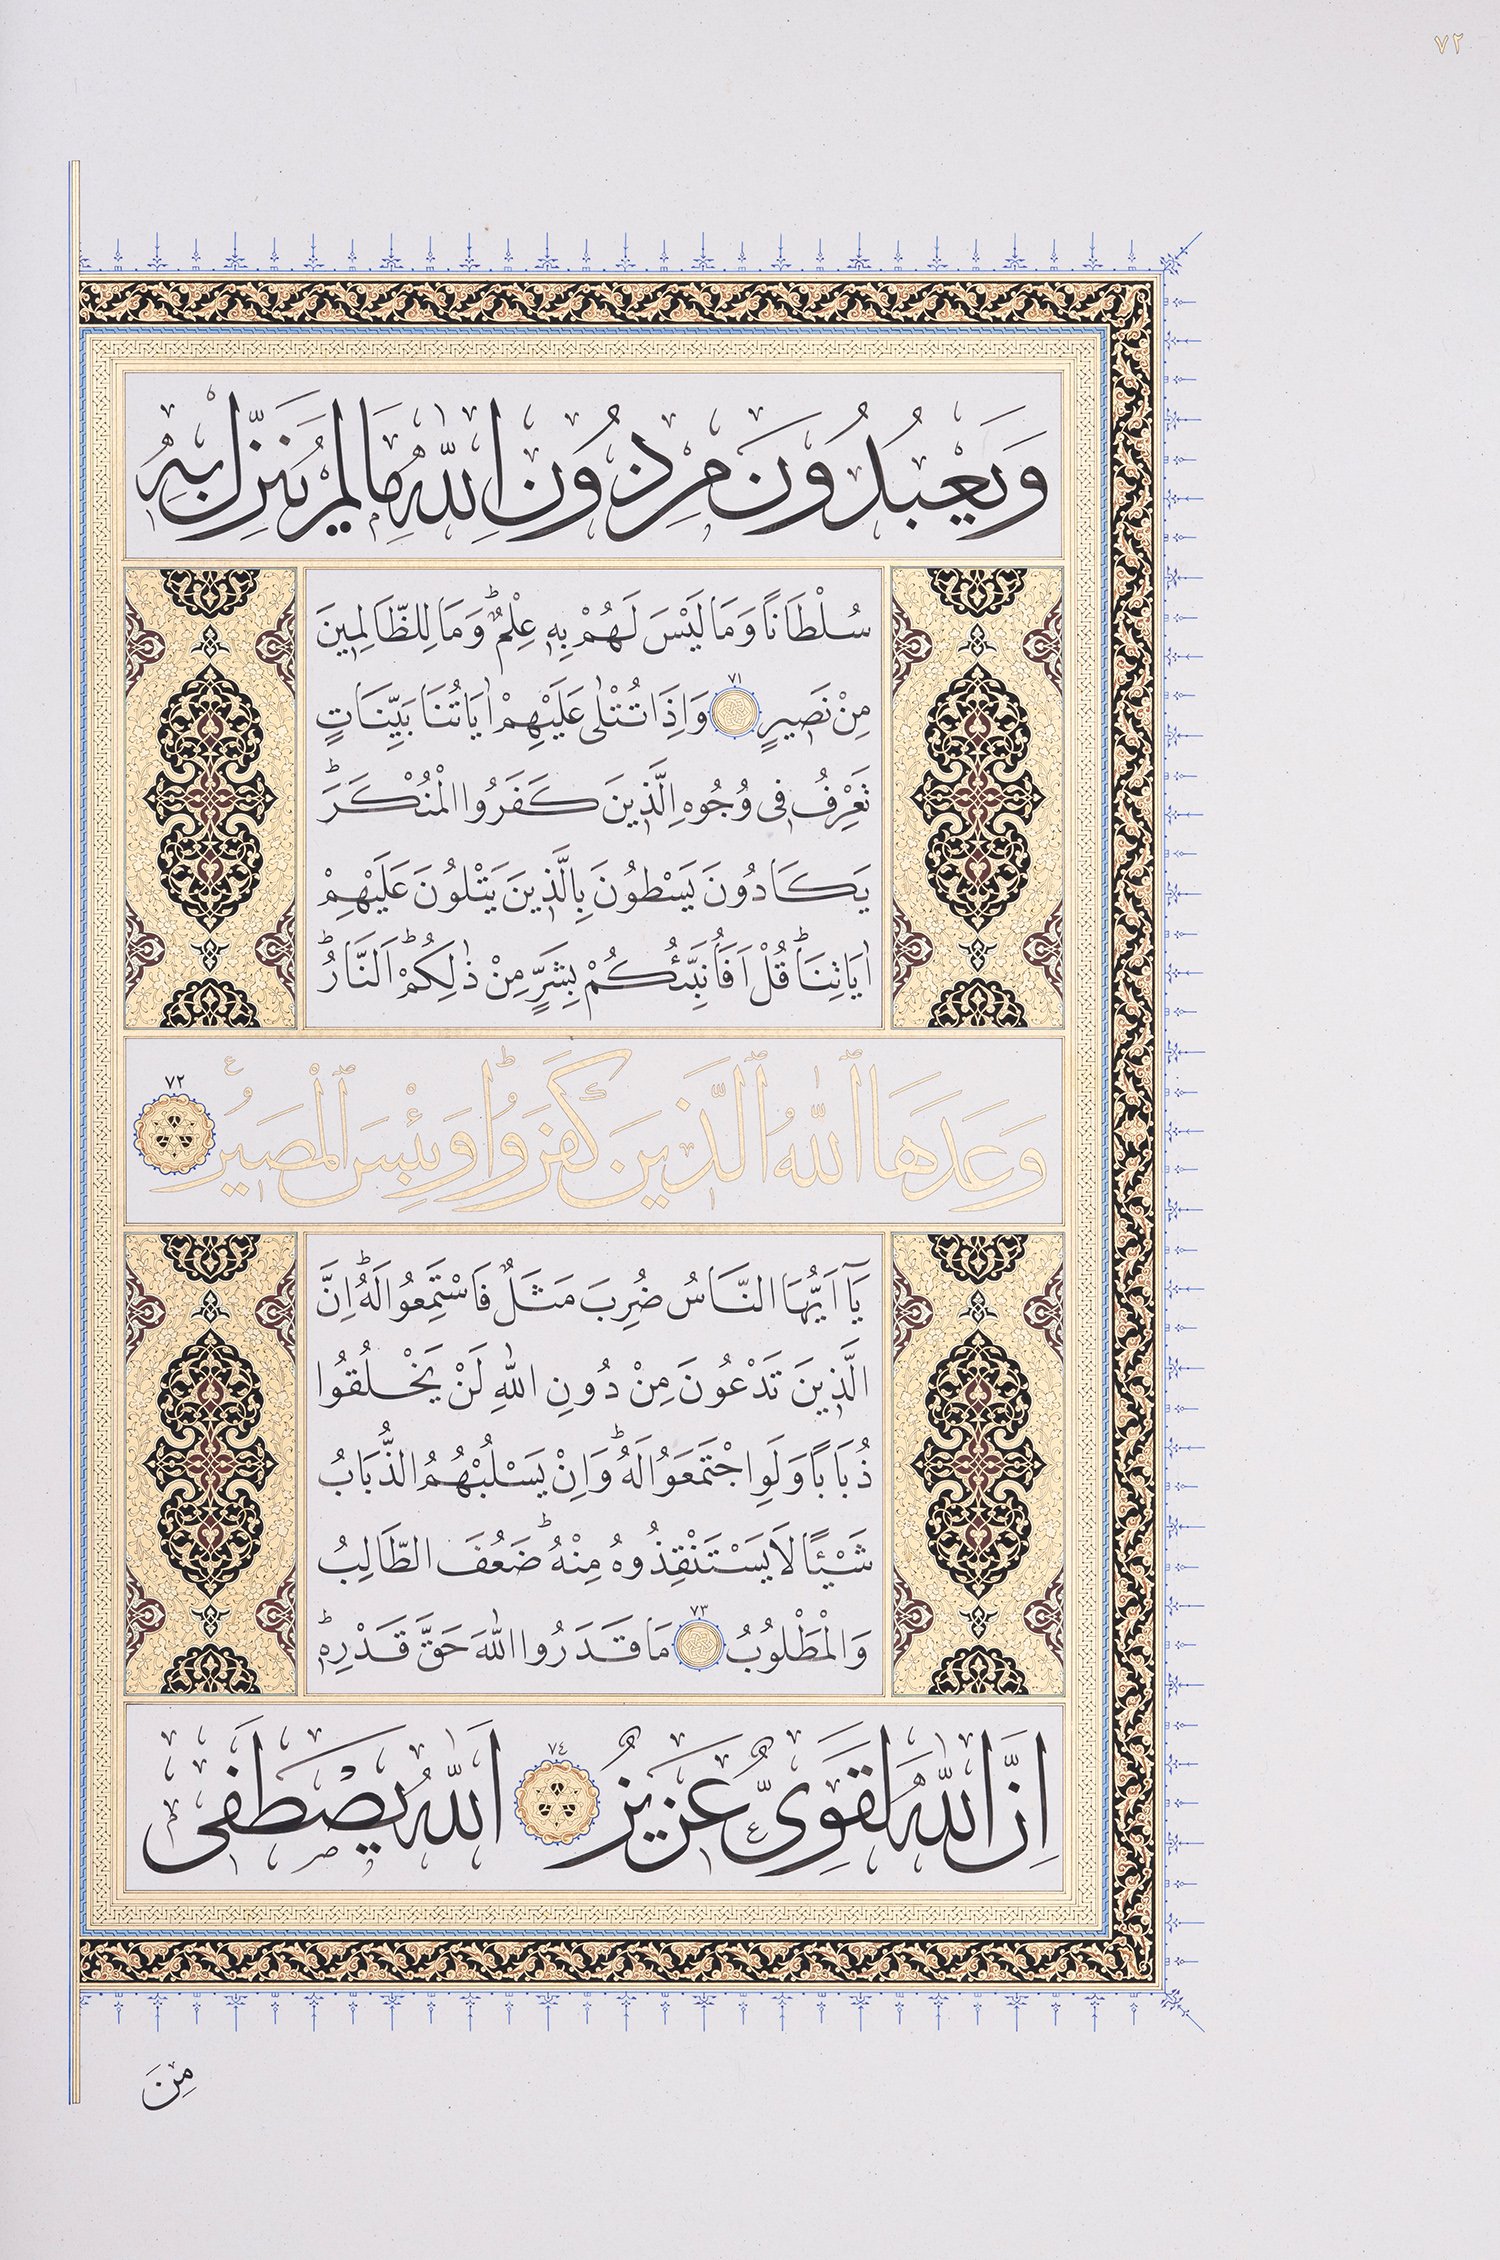 ٧٢
وَيَعْبُدُونَ مِنْ دُونِ اللّٰهِ مَا لَمْ يُنَزِّلْ بِهٖ
سُلْطَانًا وَمَا لَيْسَ لَهُمْ بِهٖ عِلْمٌۜ وَمَا لِلظَّالِمٖينَ
مِنْ نَصٖيرٍ ٧١ وَاِذَا تُتْلٰى عَلَيْهِمْ اٰيَاتُنَا بَيِّنَاتٍ
تَعْرِفُ فٖى وُجُوهِ الَّذٖينَ كَفَرُوا الْمُنْكَرَۜ
يَكَادُونَ يَسْطُونَ بِالَّذٖينَ يَتْلُونَ عَلَيْهِمْ
اٰيَاتِنَاۜ قُلْ اَفَاُنَبِّئُكُمْ بِشَرٍّ مِنْ ذٰلِكُمْۜ اَلنَّارُۜ
وَعَدَهَا اللّٰهُ الَّذٖينَ كَفَرُواۜ وَبِئْسَ الْمَصٖيرُ ٧٢
يَٓا اَيُّهَا النَّاسُ ضُرِبَ مَثَلٌ فَاسْتَمِعُوا لَهُۜ اِنَّ
الَّذٖينَ تَدْعُونَ مِنْ دُونِ اللّٰهِ لَنْ يَخْلُقُوا
ذُبَابًا وَلَوِ اجْتَمَعُوا لَهُۜ وَاِنْ يَسْلُبْهُمُ الذُّبَابُ
شَيْـًٔا لَا يَسْتَنْقِذُوهُ مِنْهُۜ ضَعُفَ الطَّالِبُ
وَالْمَطْلُوبُ ٧٣ مَا قَدَرُوا اللّٰهَ حَقَّ قَدْرِهٖۜ
اِنَّ اللّٰهَ لَقَوِىٌّ عَزٖيزٌ ٧٤ اَللّٰهُ يَصْطَفٖى
مِنَ